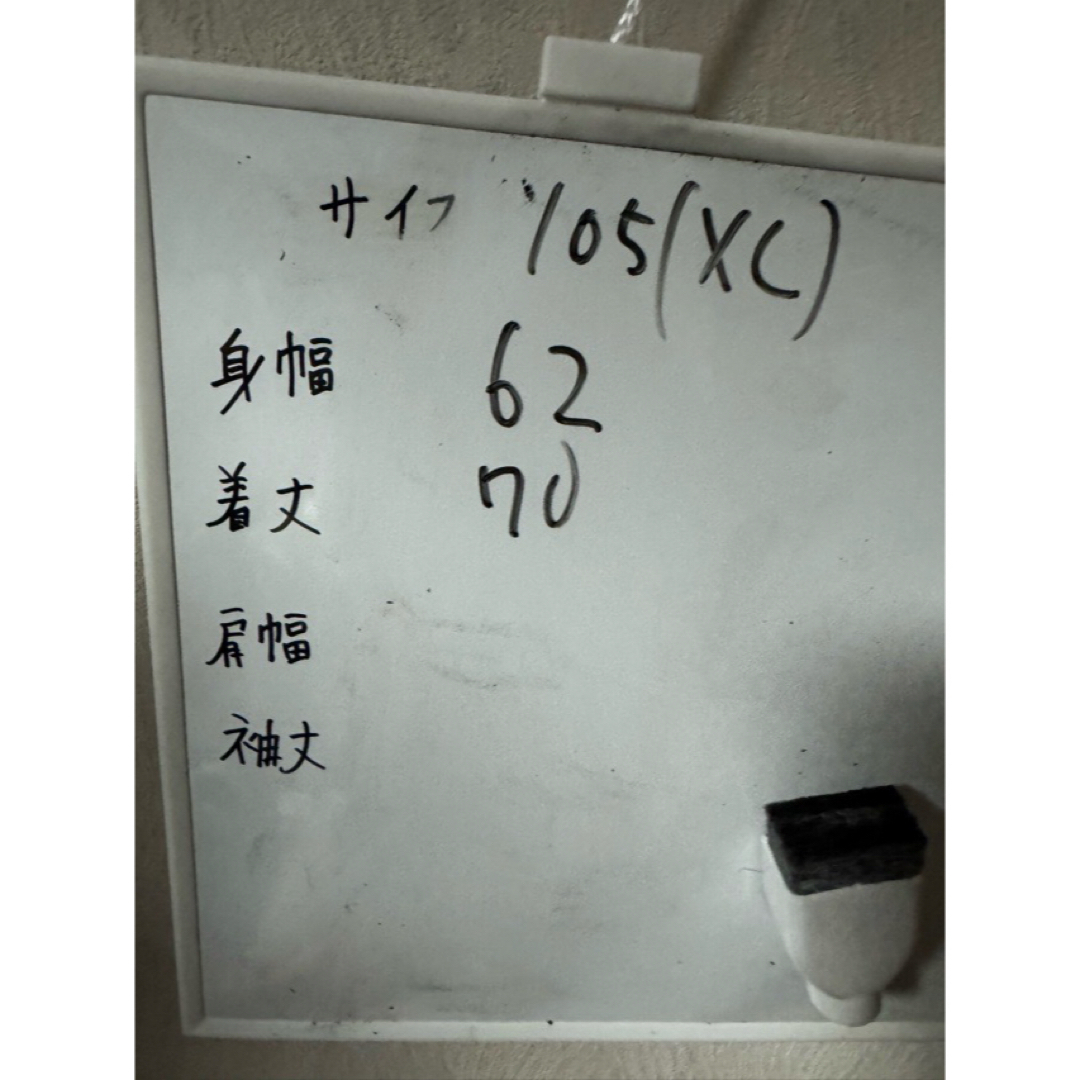 サイズ 105(XL)
身幅 62
着丈 70
肩幅
袖丈